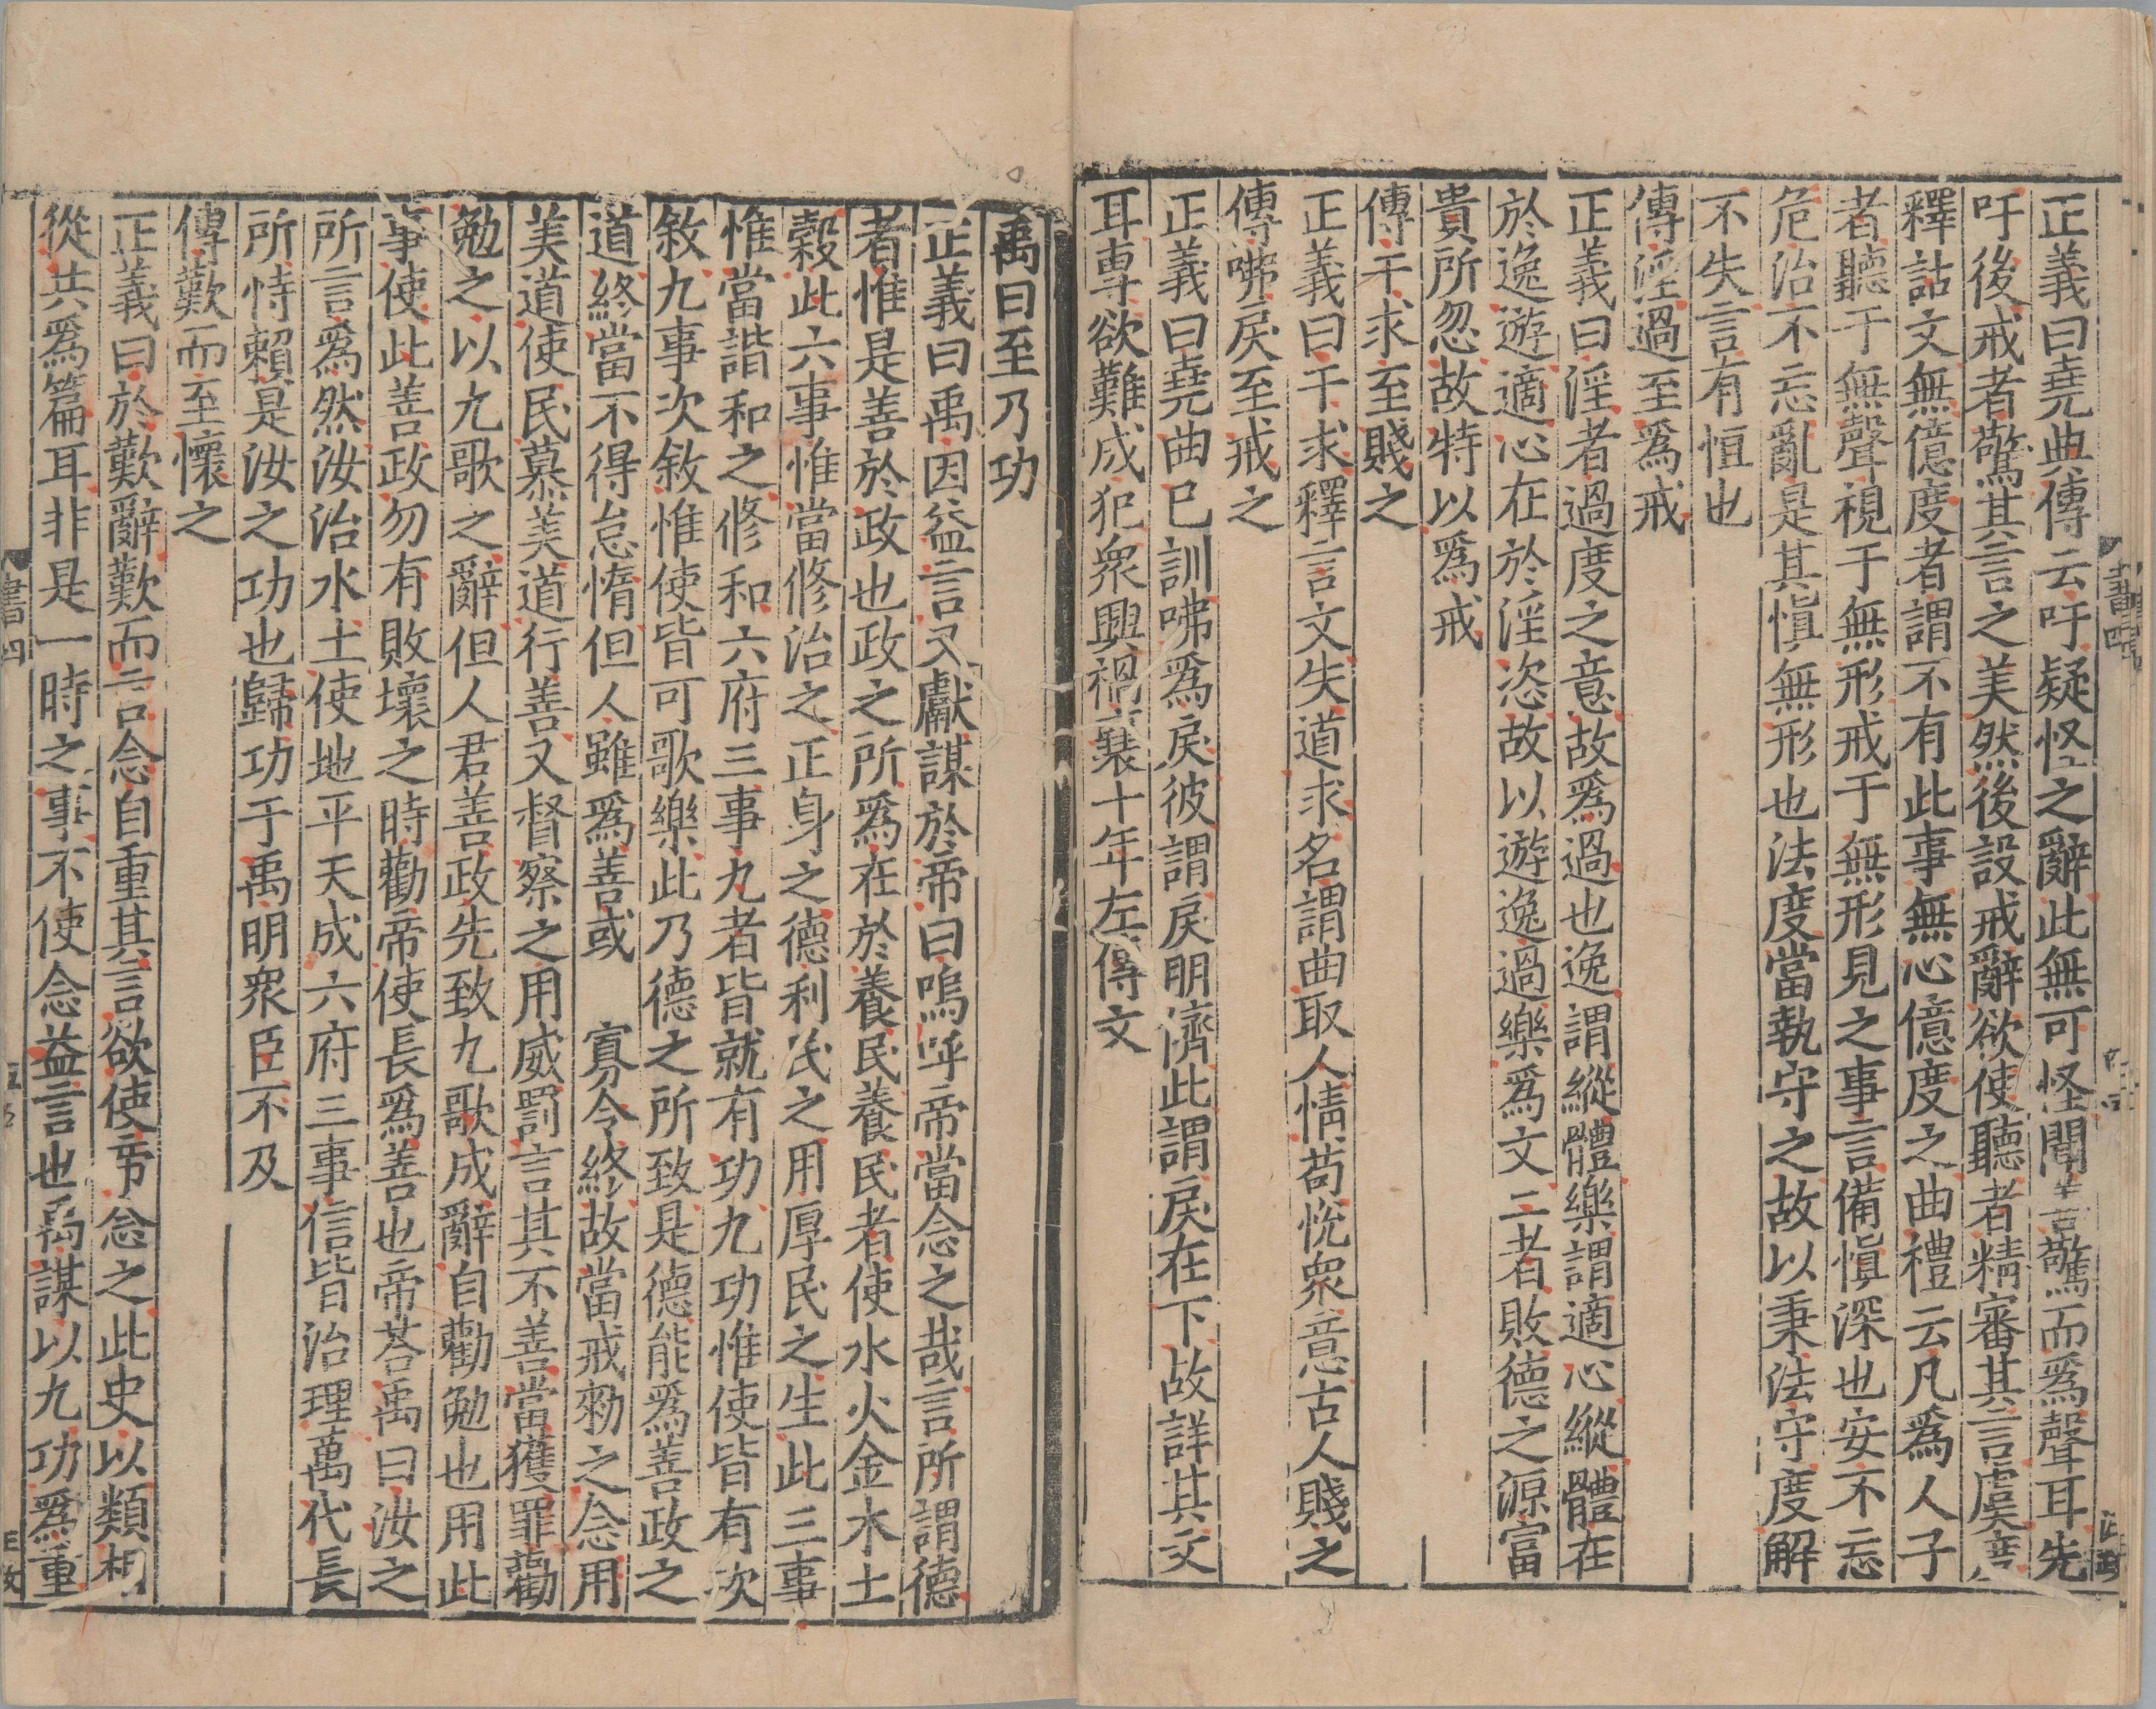 正義曰堯典傳云吁疑怪之辭此無可怪聞善驚而爲聲耳先
吁後戒者驚其言之美然後設戒辭欲使聽者精審其言虞度
釋詁文無億度者謂不有此事無心億度之曲禮云凡爲人子
者聽于無聲視于無形戒于無形見之事言備愼深也安不忘
危治不忘亂是其愼無形也法度當執守之故以秉法守度解
不失言有恒也
傳淫過至爲戒
正義曰淫者過度之意故爲過也逸謂縱體樂謂適心縱體在
於逸遊適心在於淫恣故以遊逸過樂爲文二者敗德之源富
貴所忽故特以爲戒
傳干求至賤之
正義曰干求釋言文失道求名謂曲取人情苟悅衆意古人賤之
傳咈戾至戒之
正義曰堯典已訓咈爲戾彼謂戾朋濟此謂戾在下故詳其文
耳專欲難成犯衆興禍襄十年左傳文
禹曰至乃功
正義曰禹因益言又獻謀於帝曰嗚呼帝當念之哉言所謂德
者惟是善於政也政之所爲在於養民養民者使水火金木土
榖此六事惟當修治之正身之德利民之用厚民之生此三事
惟當諧和之修和六府三事九者皆就有功九功惟使皆有次
敘九事次敘惟使皆可歌樂此乃德之所致是德能爲善政之
道終當不得怠惰但人雖爲善或寡令終故當戒勑之念用
美道使民慕美道行善又督察之用威罰言其不善當獲罪勸
勉之以九歌之辭但人君善政先致九歌成辭自勸勉也用此
事使此善政勿有敗壞之時勸帝使長爲善也帝荅禹曰汝之
所言爲然汝治水土使地平天成六府三事信皆治理萬代長
所恃賴是汝之功也歸功于禹明衆臣不及
傳歎而至懷之
正義曰於歎辭歎而言念自重其言欲使帝念之此史以類相
從共爲篇耳非是一時之事不使念益言也禹謀以九功爲重
書四